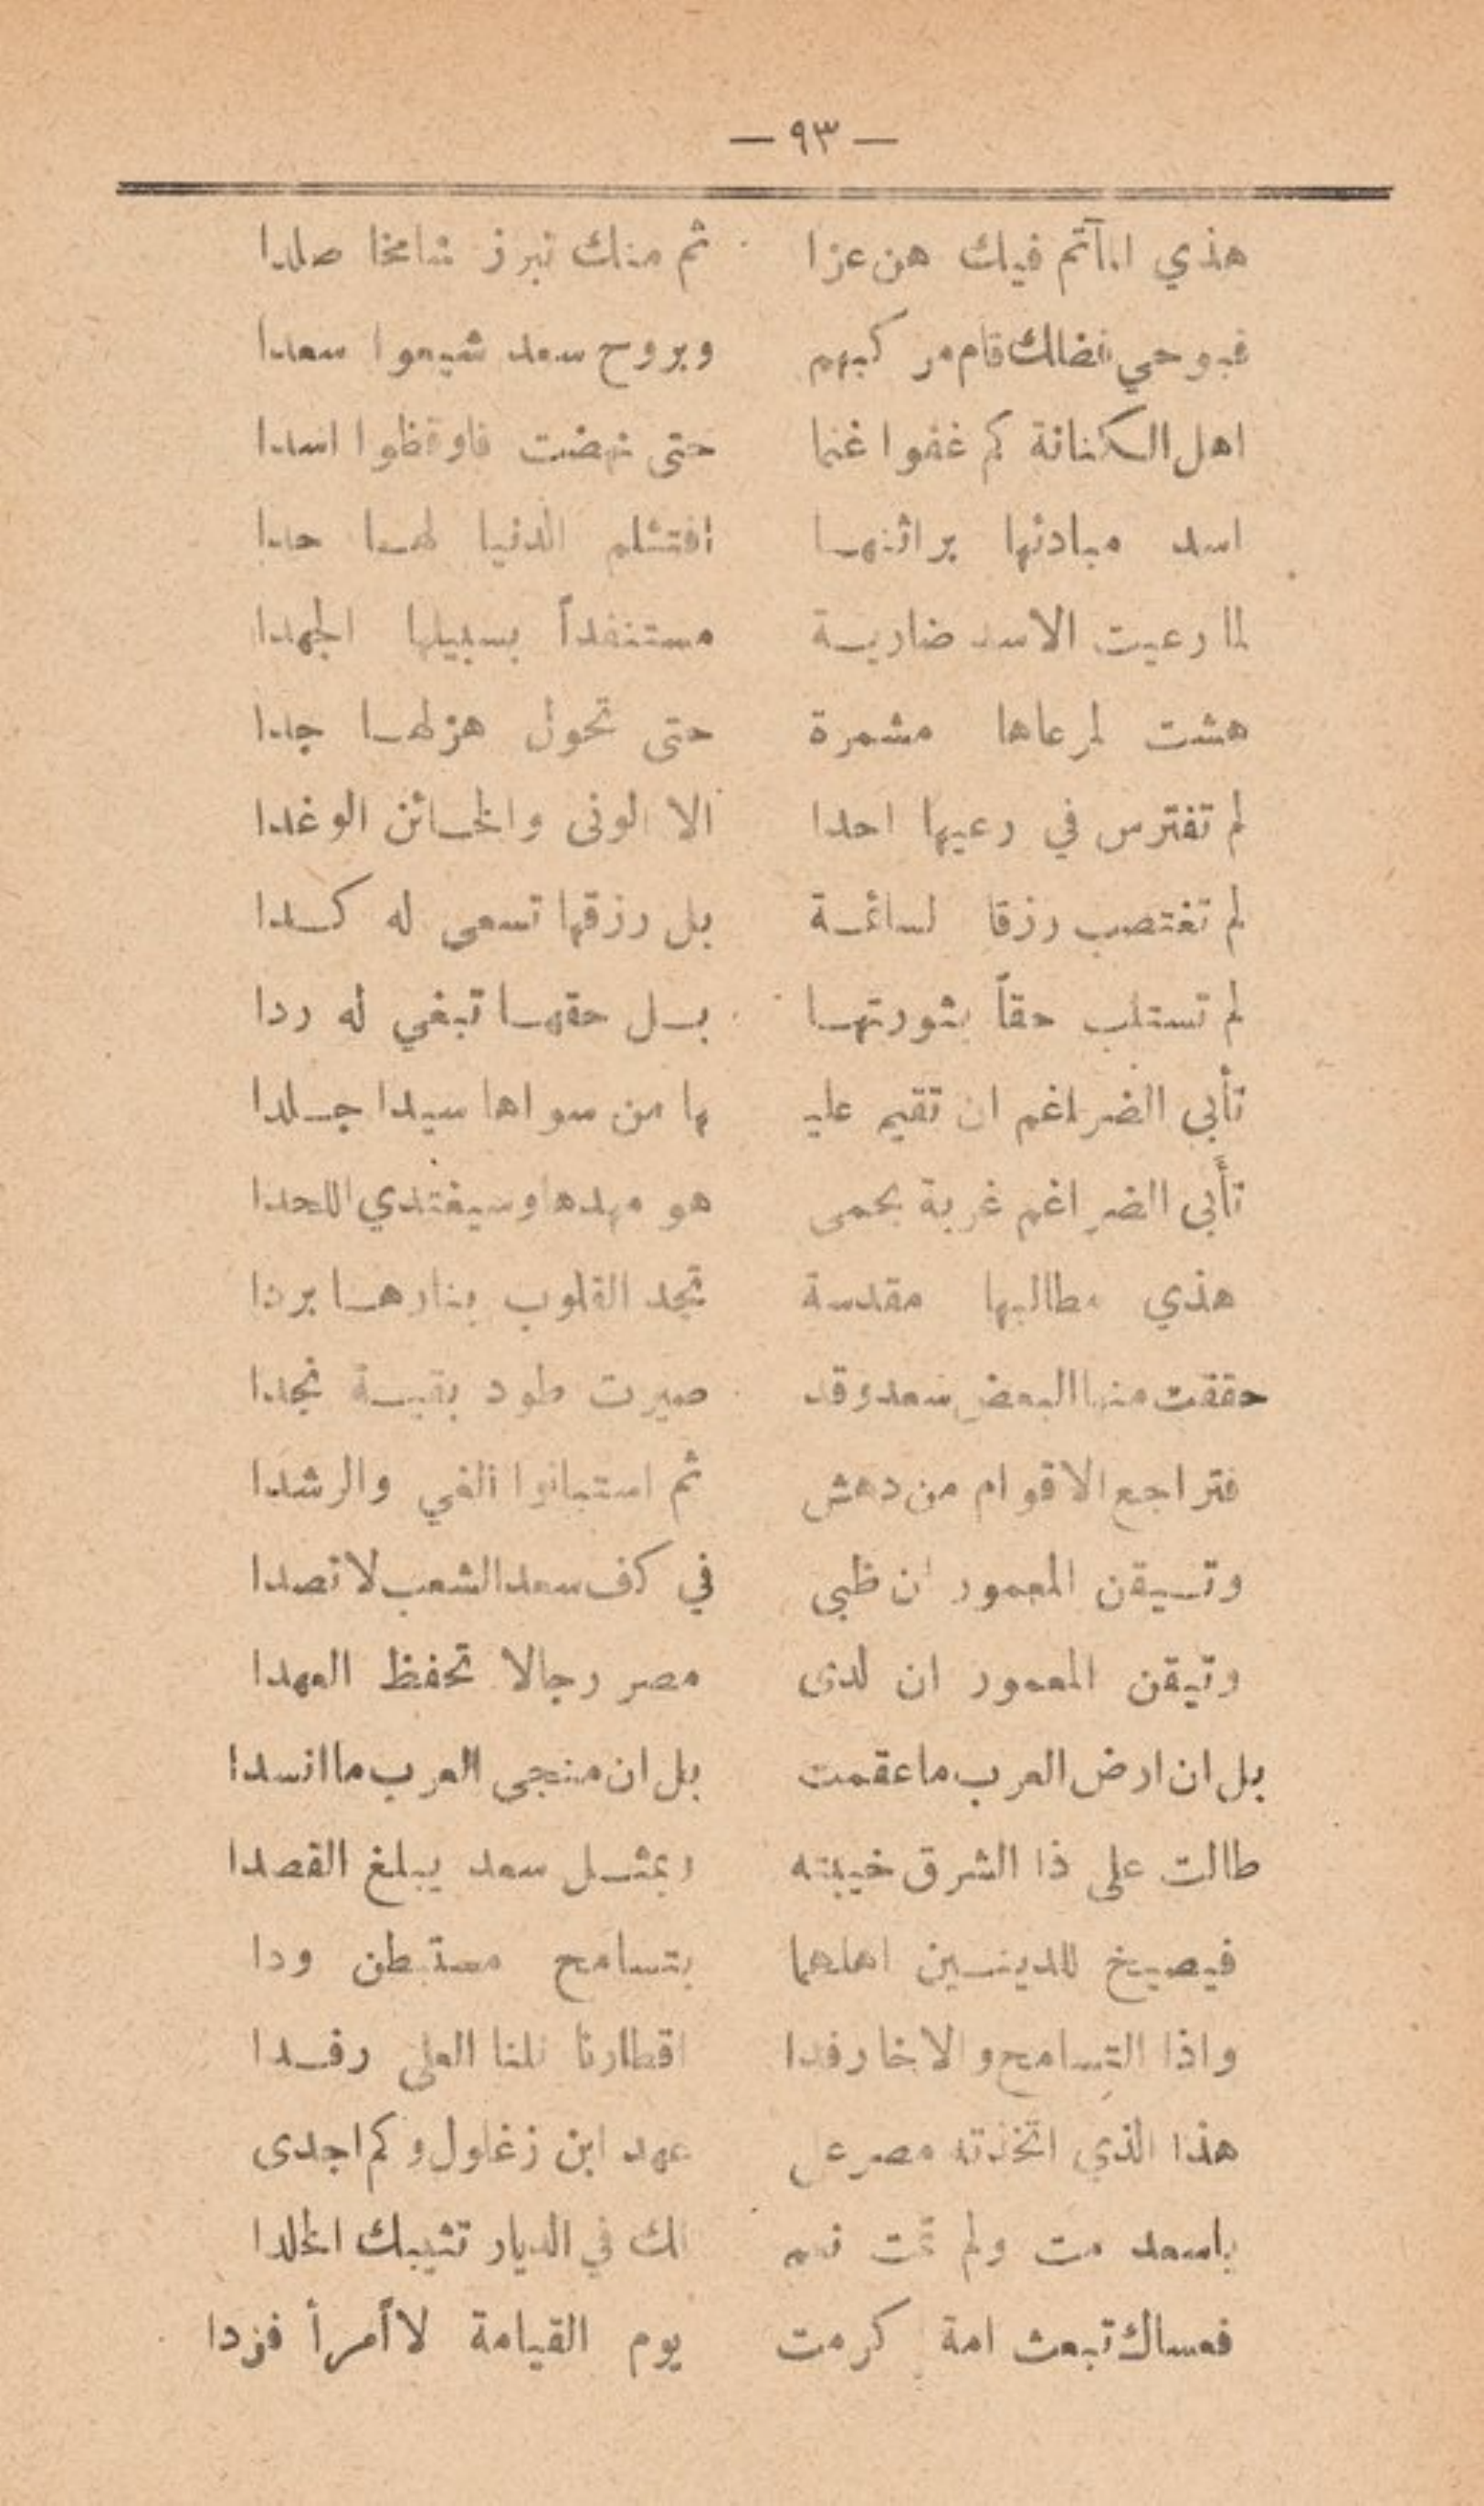 — ٩٣ —
هذي المآتم فيك هن عزا ثم منك نبرز شامخا صلدا
فبوحي فضلك قام مر كبهم وبروح سعد شيعوا سعدا
اهل الكنانة كم غفوا غنما حتى نهضت فاوقظوا اسدا
اسد مبادئها براثنها افتثلم الدنيا لها حدا
لما رعيت الاسد ضارية مستنفداً بسبيلها الجهدا
هشت لمرعاها مشمرة حتى تحول هزلها جدا
لم تفترس في رعيها احدا الا الونى والخائن الوغدا
لم تغتصب رزقا لسائمة بل رزقها تسعى له كدا
لم تستلب حقاً بثورتها بل حقها تبغي له ردا
تأبى الضراغم ان تقيم عليـ ـها من سواها سيدا جلدا
تأبى الضراغم غربة بحمى هو مهدها وسيغتدي اللحدا
هذي مطالبها مقدسة تجد القلوب بنارها بردا
حققت منها البعض سعد وقد صيرت طود بقية نجدا
فتراجع الاقوام من دهش ثم استبانوا الغي والرشدا
وتيقن المعمور ان ظبى في كف سعد الشعب لا تصدا
وتيقن المعمور ان لدى مصر رجالا تحفظ العهدا
بل ان ارض العرب ما عقمت بل ان منجى العرب ما انسدا
طالت على ذا الشرق خيبته وبمثل سعد يبلغ القصدا
فيصيخ للدينين اهلهما بتسامح مستبطن ودا
واذا التسامح والاخا رفدا اقطارنا نلنا العلى رفدا
هذا الذي اتخذته مصر على عهد ابن زغلول وكم اجدى
ياسعد مت ولم تمت فهم لك في الديار تثيبك الخلدا
فعساك تبعث امة كرمت يوم القيامة لا أمرأ فردا